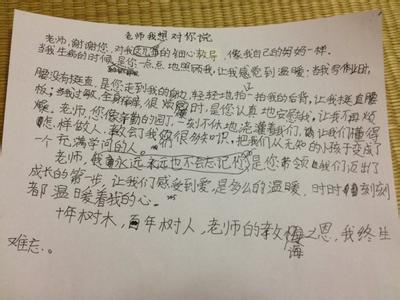 老师我想对你说
老师,谢谢您,对我这几年的细心教导,像我自己的妈妈一样。
当我生病的时候,是你一点点地照顾我,让我感觉到温暖;当我写作业时,
腰没有挺直,是您走到我的身边,轻轻地拍一拍我的后背,让我挺直腰
板;当我过敏,全身 很烦 时,是您认真地安慰我,让我不再烦
燥。老师,您像辛勤的园丁,一刻不休地浇灌着我们,让我们懂得
怎样做人,教会了我们很多知识,把我们从无知的小孩子变成了
一个充满学问的人。
老师,我永远永远也不会忘记你,是您带领我们迈出了
成长的第一步,让我们感受到爱,是多么的温暖,时时刻刻
都温日爱着我的心。
十年树木,百年树人,老师的教悔之恩,我终生
诲
难忘。